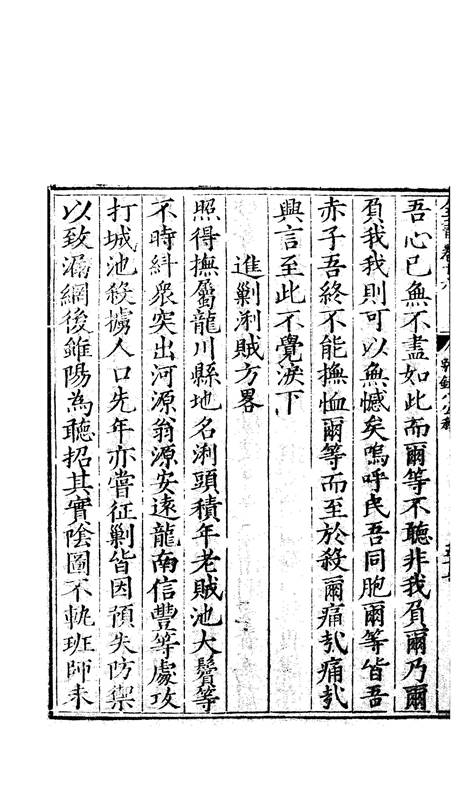 吾心已無不盡如此而爾等不聽非我負爾乃爾
負我我則可以無憾矣嗚呼民吾同胞爾等皆吾
赤子吾終不能撫恤爾等而至於殺爾痛㢤痛㢤
興言至此不覺淚下
進剿浰賊方畧
照得撫屬龍川縣地名浰頭積年老賊池大鬢等
不時糾衆突出河源翁源安遠龍南信豐等處攻
打城池殺擄人口先年亦嘗征剿皆因預失防禦
以致漏網後雖陽為聽招其實陰圖不軌班師未